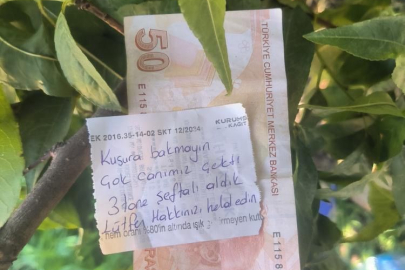 50
E 115
TÜRKİYE CUMHURİYET MERKEZ BANKASI
EK 2016.35-14-02 SKT 12/20
KAĞIT
Kusura bakmayın
Çok canımız çekti
3 tane şeftali aldık
Lütfen Hakkınızı helal edin
altında ışık
meyen kut
E 115 8